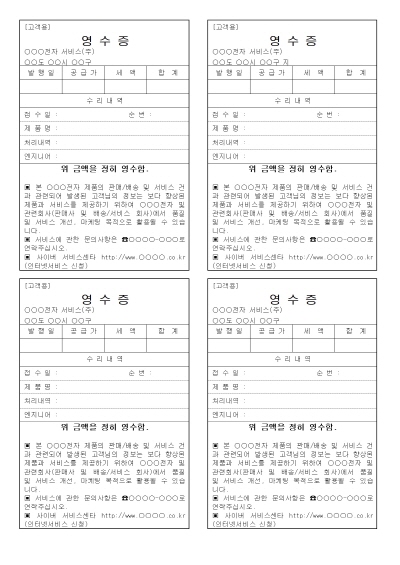 [고객용]
영 수 증
○○○전자 서비스(주)
○○도 ○○시 ○○구
발 행 일 공 급 가 세 액 합 계
수 리 내 역
접 수 일 : 순 번 :
제 품 명 :
처리내역 :
엔지니어 :
위 금액을 정히 영수함.
▣ 본 ○○○전자 제품의 판매/배송 및 서비스 건
과 관련되어 발생된 고객님의 정보는 보다 향상된
제품과 서비스를 제공하기 위하여 ○○○전자 및
관련회사(판매사 및 배송/서비스 회사)에서 품질
및 서비스 개선, 마케팅 목적으로 활용될 수 있습
니다.
▣ 서비스에 관한 문의사항은 ☎○○○○-○○○로
연락주십시오.
▣ 사이버 서비스센타 http://www.○○○○.co.kr
(인터넷서비스 신청)
[고객용]
영 수 증
○○○전자 서비스(주)
○○도 ○○시 ○○구 지
발 행 일 공 급 가 세 액 합 계
수 리 내 역
접 수 일 : 순 번 :
제 품 명 :
처리내역 :
엔지니어 :
위 금액을 정히 영수함.
▣ 본 ○○○전자 제품의 판매/배송 및 서비스 건
과 관련되어 발생된 고객님의 정보는 보다 향상된
제품과 서비스를 제공하기 위하여 ○○○전자 및
관련회사(판매사 및 배송/서비스 회사)에서 품질
및 서비스 개선, 마케팅 목적으로 활용될 수 있습
니다.
▣ 서비스에 관한 문의사항은 ☎○○○○-○○○로
연락주십시오.
▣ 사이버 서비스센타 http://www.○○○○.co.kr
(인터넷서비스 신청)
[고객용]
영 수 증
○○○전자 서비스(주)
○○도 ○○시 ○○구
발 행 일 공 급 가 세 액 합 계
수 리 내 역
접 수 일 : 순 번 :
제 품 명 :
처리내역 :
엔지니어 :
위 금액을 정히 영수함.
▣ 본 ○○○전자 제품의 판매/배송 및 서비스 건
과 관련되어 발생된 고객님의 정보는 보다 향상된
제품과 서비스를 제공하기 위하여 ○○○전자 및
관련회사(판매사 및 배송/서비스 회사)에서 품질
및 서비스 개선, 마케팅 목적으로 활용될 수 있습
니다.
▣ 서비스에 관한 문의사항은 ☎○○○○-○○○로
연락주십시오.
▣ 사이버 서비스센타 http://www.○○○○.co.kr
(인터넷서비스 신청)
[고객용]
영 수 증
○○○전자 서비스(주)
○○도 ○○시 ○○구
발 행 일 공 급 가 세 액 합 계
수 리 내 역
접 수 일 : 순 번 :
제 품 명 :
처리내역 :
엔지니어 :
위 금액을 정히 영수함.
▣ 본 ○○○전자 제품의 판매/배송 및 서비스 건
과 관련되어 발생된 고객님의 정보는 보다 향상된
제품과 서비스를 제공하기 위하여 ○○○전자 및
관련회사(판매사 및 배송/서비스 회사)에서 품질
및 서비스 개선, 마케팅 목적으로 활용될 수 있습
니다.
▣ 서비스에 관한 문의사항은 ☎○○○○-○○○로
연락주십시오.
▣ 사이버 서비스센타 http://www.○○○○.co.kr
(인터넷서비스 신청)